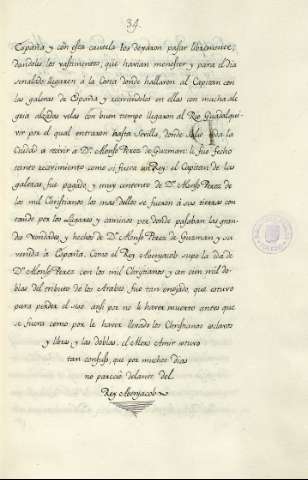 34.
España y con esta cautela los dexaron pasar libremente;
dandoles los vastimentos, que havian menester y para el dia
señalado llegaron á la Costa donde hallaron al Capitan con
las galeras de España y recivioendolos en ellas con mucha ale
gria alzadas velas con buen tiempo llegaron al Rio Guadalqui
vir por el qual entraron hasta Sevilla, donde salio toda la
Ciudad a recivir a Dn. Alonso Perez de Guzman: le fue fecho
tanto recivimiento como si fuera un Rey: el Capitan de las
galeras fue pagado, y muy contento de Dn. Alonso Perez de
los mil Christianos los mas dellos se fueron á sus tierras con
tando por los Lugares y caminos por donde pasaban las gran
des bondades, y hechos de Dn. Alonso Perez de Guzman y su
venida à España. Como el Rey Abenjacob supo la ida de
Dn. Alonso Perez con los mil Christianos y an cien mil do
blas del tributo de los Arabes, fue tan enojado, que estuvo
para perder el seso, ansi por no le haver muerto antes que
se fuera como por le haver llevado los Christianos esclavos
y libres y las doblas. el Mexo Amir estuvo
tan confuso, que por muchos dias
no pareció delante del
Rey Abenjacob